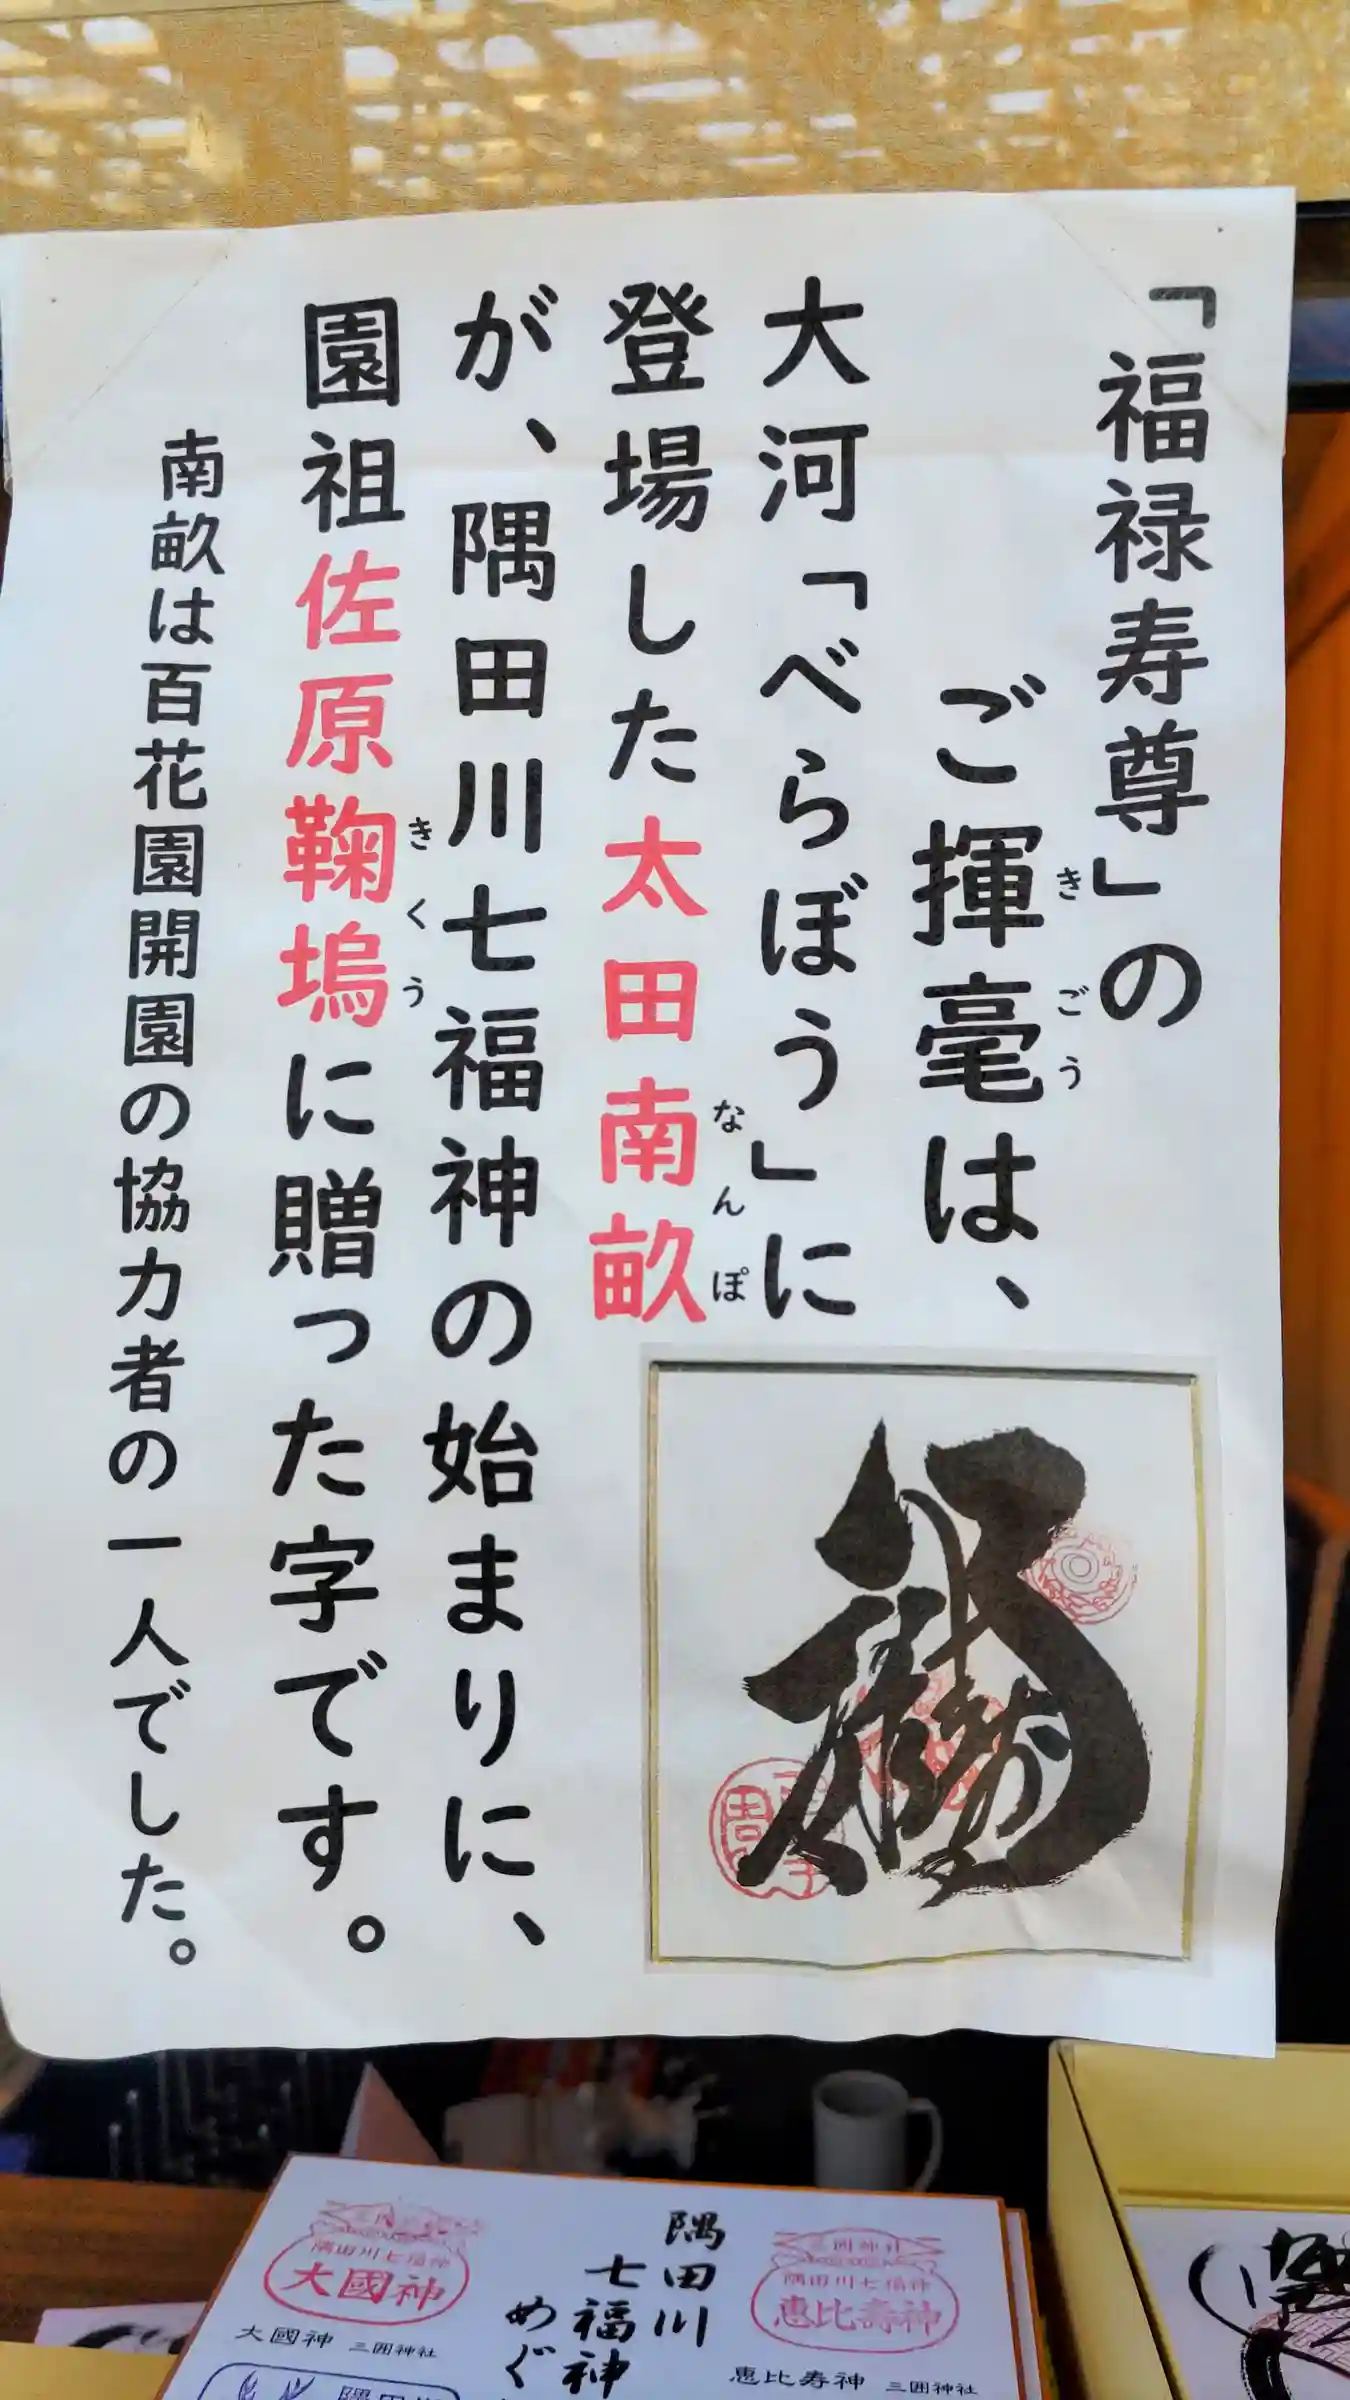 「福禄寿尊」の
ご揮毫は、
きごう
大河「べらぼう」に
登場した太田南畝
なんぽ
が、隅田川七福神の始まりに、
園祖佐原鞠塢に贈った字です。
きくう
南畝は百花園開園の協力者の一人でした。
隅田川
七福神
めぐ
三囲神社
隅田川七福神
恵比壽神
恵比寿神 三囲神社
隅田川七福神
大國神
大國神 三囲神社